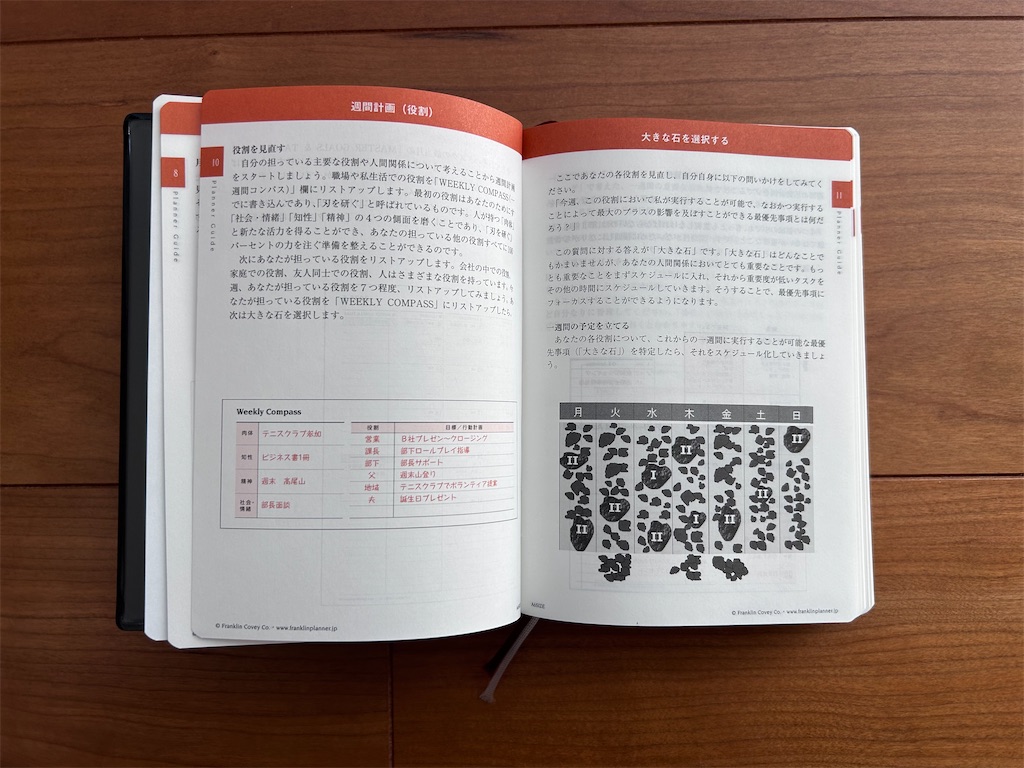 週間計画（役割）
10
Planner Guide
8
Planner Guide
役割を見直す
自分の担っている主要な役割や人間関係について考えることから週間計画
をスタートしましょう。職場や私生活での役割を「WEEKLY COMPASS（
週間コンパス）」欄にリストアップします。最初の役割はあなたのためにす
でに書き込んであり、「刃を研ぐ」と呼ばれているものです。人が持つ「肉体」
「社会・情緒」「知性」「精神」の４つの側面を磨くことであり、「刃を研ぐ」
と新たな活力を得ることができ、あなたの担っている他の役割すべてに100
パーセントの力を注ぐ準備を整えることができるのです。
次にあなたが担っている役割をリストアップします。会社の中での役割、
家庭での役割、友人同士での役割、人はさまざまな役割を持っています。今
週、あなたが担っている役割を７つ程度、リストアップしてみましょう。あ
なたが担っている役割を「WEEKLY COMPASS」にリストアップしたら、
次は大きな石を選択します。
Weekly Compass
肉体 テニスクラブ参加
知性 ビジネス書1冊
精神 週末 高尾山
社会・情緒 部長面談
役割 目標／行動計画
営業 B社プレゼン〜クロージング
課長 部下ロールプレイ指導
部下 部長サポート
父 週末山登り
地域 テニスクラブでボランティア提案
夫 誕生日プレゼント
© Franklin Covey Co. – www.franklinplanner.jp
大きな石を選択する
11
Planner Guide
ここであなたの各役割を見直し、自分自身に以下の問いかけをしてみてく
ださい。
「今週、この役割において私が実行することが可能で、なおかつ実行する
ことによって最大のプラスの影響を及ぼすことができる最優先事項とは何だ
ろう？」
この質問に対する答えが「大きな石」です。「大きな石」はどんなことで
もかまいませんが、あなたの人間関係においてとても重要なことです。もっ
とも重要なことをまずスケジュールに入れ、それから重要度が低いタスクを
その他の時間にスケジュールしていきます。そうすることで、最優先事項に
フォーカスすることができるようになります。
一週間の予定を立てる
あなたの各役割について、これからの一週間に実行することが可能な最優
先事項（「大きな石」）を特定したら、それをスケジュール化していきましょ
う。
月 火 水 木 金 土 日
II
II
II
I
II
II
I
II
II
II
© Franklin Covey Co. – www.franklinplanner.jp